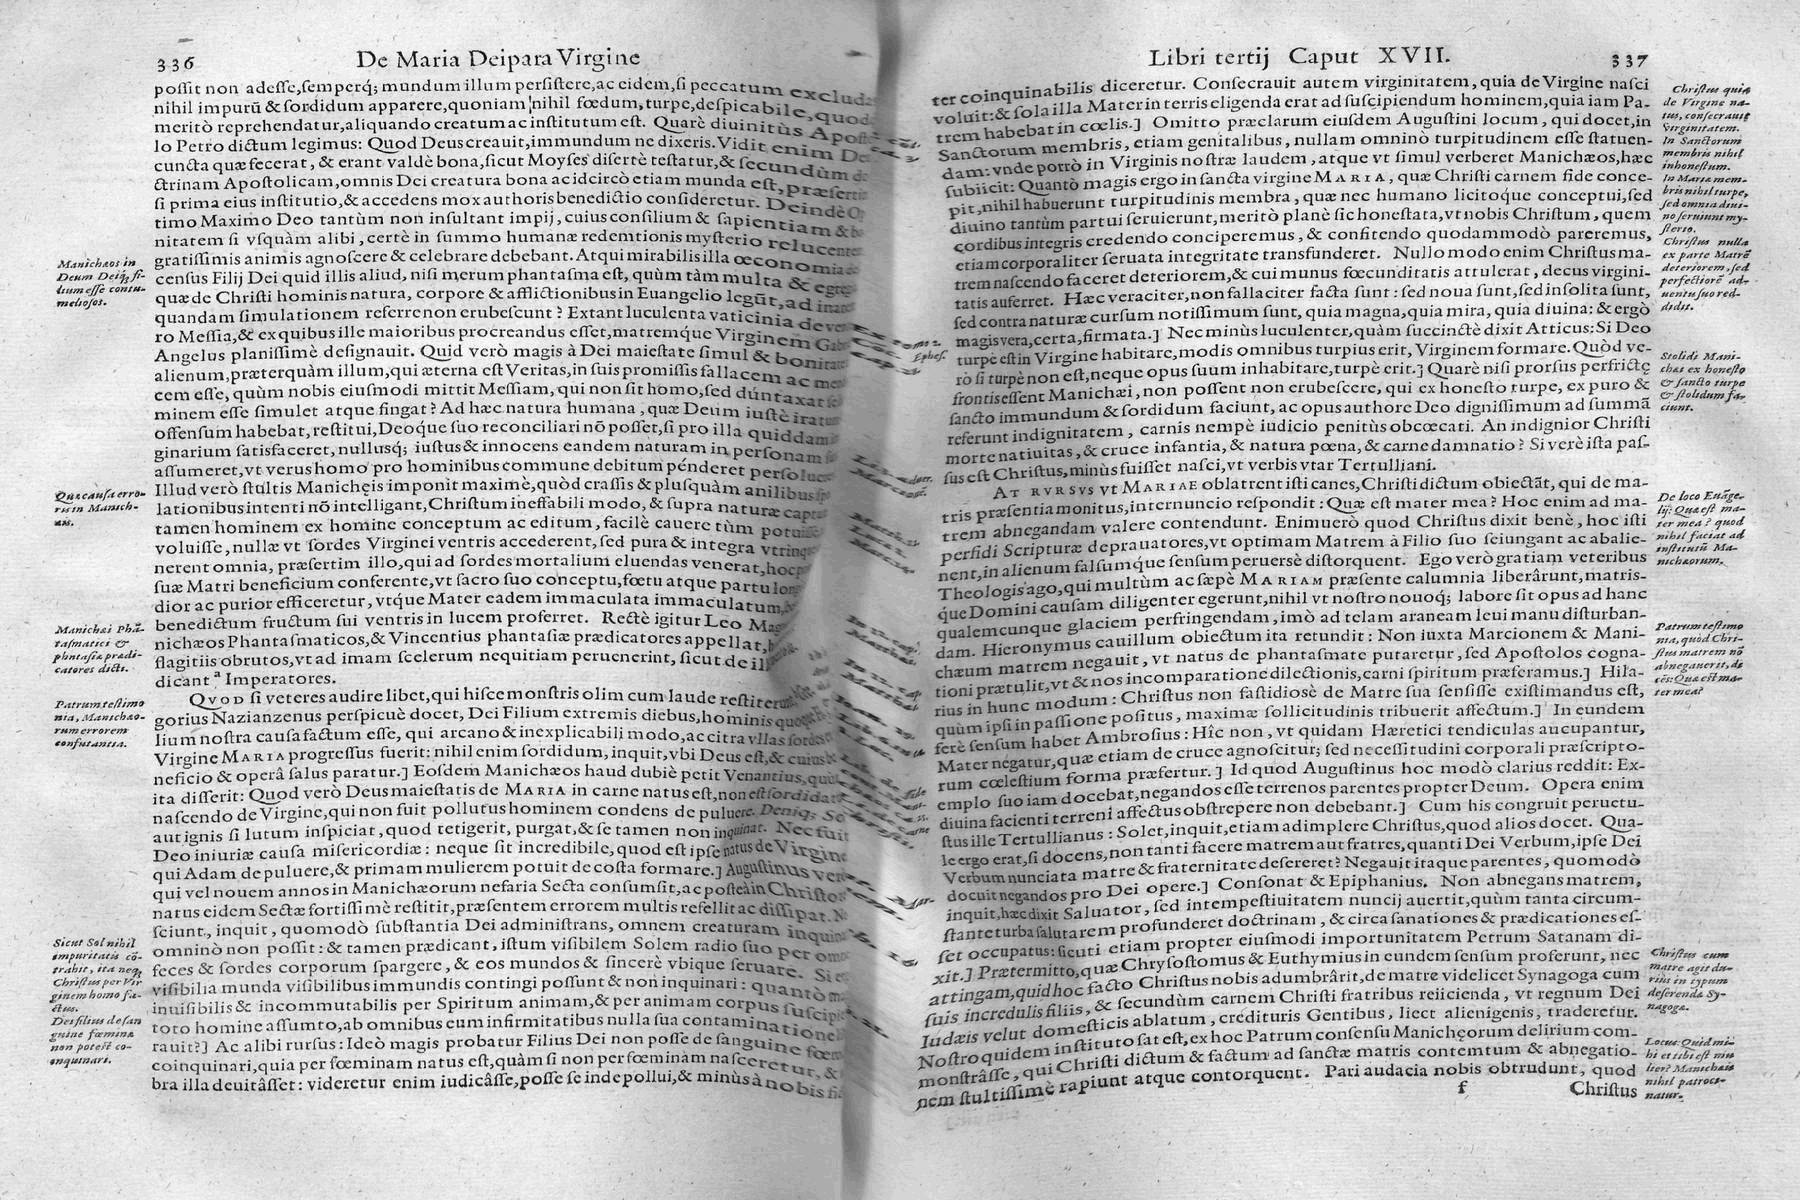 336
De Maria Deipara Virgine
possit non adesse, semperq́; mundum illum persistere, ac eidem, si peccatum
nihil impurū & sordidum apparere, quoniam nihil fœdum, turpe, despicabile, quod
meritò reprehendatur, aliquando creatum ac institutum est. Quarè diuinitùs
lo Petro dictum legimus: Quod Deus creauit, immundum ne dixeris. Vidit enim
cuncta quæ fecerat, & erant valdè bona, sicut Moyses disertè testatur, & secundùm
ctrinam Apostolicam, omnis Dei creatura bona ac idcircò etiam munda est,
si prima eius institutio, & accedens mox authoris benedictio consideretur. Deindè
timo Maximo Deo tantùm non insultant impij, cuius consilium & sapientiam &
nitatem si vsquàm alibi, certè in summo humanæ redemtionis mysterio
gratissimis animis agnoscere & celebrare debebant. Atqui mirabilis illa œconomia
census Filij Dei quid illis aliud, nisi merum phantasma est, quùm tàm multa &
quæ de Christi hominis natura, corpore & afflictionibus in Euangelio legūt, ad
quandam simulationem referre non erubescunt? Extant luculenta vaticinia de
ro Messia, & ex quibus ille maioribus procreandus esset, matremque Virginem
Angelus planissimè designauit. Quid verò magis à Dei maiestate simul &
alienum, præterquàm illum, qui æterna est Veritas, in suis promissis fallacem ac
cem esse, quùm nobis eiusmodi mittit Messiam, qui non sit homo, sed dúntaxat
minem esse simulet atque fingat? Ad hæc natura humana, quæ Deum iustè
offensum habebat, restitui, Deoque suo reconciliari nō posset, si pro illa quiddam
ginarium satisfaceret, nullusq; iustus & innocens eandem naturam in personam
assumeret, vt verus homo pro hominibus commune debitum pénderet
Illud verò stultis Manichęis imponit maximè, quòd crassis & plusquàm anilibus
lationibus intenti nō intelligant, Christum ineffabili modo, & supra naturæ
tamen hominem ex homine conceptum ac editum, facilè cauere tùm
voluisse, nullæ vt sordes Virginei ventris accederent, sed pura & integra
nerent omnia, præsertim illo, qui ad sordes mortalium eluendas venerat,
suæ Matri beneficium conferente, vt sacro suo conceptu, fœtu atque partu
dior ac purior efficeretur, vtque Mater eadem immaculata immaculatum,
benedictum fructum sui ventris in lucem proferret. Rectè igitur Leo
nichæos Phantasmaticos, & Vincentius phantasiæ prædicatores appellat,
flagitiis obrutos, vt ad imam scelerum nequitiam peruenerint, sicut de
dicant a Imperatores.
Qvod si veteres audire libet, qui hisce monstris olim cum laude
gorius Nazianzenus perspicuè docet, Dei Filium extremis diebus, hominis
lium nostra causa factum esse, qui arcano & inexplicabili modo, ac citra vllas
Virgine Maria progressus fuerit: nihil enim sordidum, inquit, vbi Deus est, & cuius
neficio & operâ salus paratur.] Eosdem Manichæos haud dubiè petit Venantius,
ita disserit: Quod verò Deus maiestatis de Maria in carne natus est, non est
nascendo de Virgine, qui non fuit pollutus hominem condens de puluere.
aut ignis si lutum inspiciat, quod tetigerit, purgat, & se tamen non inquinat. Nec fuit
Deo iniuriæ causa misericordiæ: neque sit incredibile, quod est ipse natus de Virgine
qui Adam de puluere, & primam mulierem potuit de costa formare.] Augustinus
qui vel nouem annos in Manichæorum nefaria Secta consumsit, ac posteà in
natus eidem Sectæ fortissimè restitit, præsentem errorem multis refellit ac dissipat.
sciunt, inquit, quomodò substantia Dei administrans, omnem creaturam
omninò non possit: & tamen prædicant, istum visibilem Solem radio suo per
feces & sordes corporum spargere, & eos mundos & sincerè vbique seruare. Si
visibilia munda visibilibus immundis contingi possunt & non inquinari: quantò
inuisibilis & incommutabilis per Spiritum animam, & per animam corpus
toto homine assumto, ab omnibus eum infirmitatibus nulla sua contaminatione
rauit?] Ac alibi rursus: Ideò magis probatur Filius Dei non posse de sanguine
coinquinari, quia per fœminam natus est, quàm si non per fœminam nasceretur, &
bra illa deuitâsset: videretur enim iudicâsse, posse se inde pollui, & minùs à nobis
Manichæos in
Deum Deiq́; fi-
lium esse contu-
meliosos.
Quæ causa erro-
ris in Manich-
æis.
Manichæi Phā-
tasmatici &
phantasiæ prædi-
catores dicti.
Patrum testimo
nia, Manichæo-
rum errorem
confutantia.
Sicut Sol nihil
impuritatis cō-
trahit, ita neq;
Christus per Vir
ginem homo fa-
ctus.
Dei filius de san
guine fœminæ
non potest co-
inquinari.
Libri tertij Caput XVII.
337
ter coinquinabilis diceretur. Consecrauit autem virginitatem, quia de Virgine nasci
voluit: & sola illa Mater in terris eligenda erat ad suscipiendum hominem, quia iam Pa-
trem habebat in cœlis.] Omitto præclarum eiusdem Augustini locum, qui docet, in
Sanctorum membris, etiam genitalibus, nullam omninò turpitudinem esse statuen-
dam: vnde porrò in Virginis nostræ laudem, atque vt simul verberet Manichæos, hæc
subiicit: Quantò magis ergo in sancta virgine Maria, quæ Christi carnem fide conce-
pit, nihil habuerunt turpitudinis membra, quæ nec humano licitoque conceptui, sed
diuino tantùm partui seruierunt, meritò planè sic honestata, vt nobis Christum, quem
cordibus integris credendo conciperemus, & confitendo quodammodò pareremus,
etiam corporaliter seruata integritate transfunderet. Nullo modo enim Christus ma-
trem nascendo faceret deteriorem, & cui munus fœcunditatis attulerat, decus virgini-
tatis auferret. Hæc veraciter, non fallaciter facta sunt: sed noua sunt, sed insolita sunt,
sed contra naturæ cursum notissimum sunt, quia magna, quia mira, quia diuina: & ergò
magis vera, certa, firmata.] Nec minùs luculenter, quàm succinctè dixit Atticus: Si Deo
turpè est in Virgine habitare, modis omnibus turpius erit, Virginem formare. Quòd ve-
rò si turpè non est, neque opus suum inhabitare, turpè erit.] Quarè nisi prorsus perfrictę
frontis essent Manichæi, non possent non erubescere, qui ex honesto turpe, ex puro &
sancto immundum & sordidum faciunt, ac opus authore Deo dignissimum ad summā
referunt indignitatem, carnis nempè iudicio penitùs obcœcati. An indignior Christi
morte natiuitas, & cruce infantia, & natura pœna, & carne damnatio? Si verè ista pas-
sus est Christus, minùs fuisset nasci, vt verbis vtar Tertulliani.
At rvrsvs vt Mariae oblatrent isti canes, Christi dictum obiectāt, qui de ma-
tris præsentia monitus, internuncio respondit: Quæ est mater mea? Hoc enim ad ma-
trem abnegandam valere contendunt. Enimuerò quod Christus dixit benè, hoc isti
perfidi Scripturæ deprauatores, vt optimam Matrem à Filio suo seiungant ac abalie-
nent, in alienum falsumq́ue sensum peruersè distorquent. Ego verò gratiam veteribus
Theologis ago, qui multùm ac sæpè Mariam præsente calumnia liberârunt, matris-
q́ue Domini causam diligenter egerunt, nihil vt nostro nouoq; labore sit opus ad hanc
qualemcunque glaciem perfringendam, imò ad telam araneam leui manu disturban-
dam. Hieronymus cauillum obiectum ita retundit: Non iuxta Marcionem & Mani-
chæum matrem negauit, vt natus de phantasmate putaretur, sed Apostolos cogna-
tioni prætulit, vt & nos in comparatione dilectionis, carni spiritum præferamus.] Hila-
rius in hunc modum: Christus non fastidiosè de Matre sua sensisse existimandus est,
quùm ipsi in passione positus, maximæ sollicitudinis tribuerit affectum.] In eundem
ferè sensum habet Ambrosius: Hîc non, vt quidam Hæretici tendiculas aucupantur,
Mater negatur, quæ etiam de cruce agnoscitur; sed necessitudini corporali præscripto-
rum cœlestium forma præfertur.] Id quod Augustinus hoc modò clarius reddit: Ex-
emplo suo iam docebat, negandos esse terrenos parentes propter Deum. Opera enim
diuina facienti terreni affectus obstrepere non debebant.] Cum his congruit peruetu-
stus ille Tertullianus: Solet, inquit, etiam adimplere Christus, quod alios docet. Qua-
le ergo erat, si docens, non tanti facere matrem aut fratres, quanti Dei Verbum, ipse Dei
Verbum nunciata matre & fraternitate desereret? Negauit itaque parentes, quomodò
docuit negandos pro Dei opere.] Consonat & Epiphanius. Non abnegans matrem,
inquit, hæc dixit Saluator, sed intempestiuitatem nuncij auertit, quùm tanta circum-
stante turba salutarem profunderet doctrinam, & circa sanationes & prædicationes es-
set occupatus: sicuti etiam propter eiusmodi importunitatem Petrum Satanam di-
xit.] Prætermitto, quæ Chrysostomus & Euthymius in eundem sensum proferunt, nec
attingam, quid hoc facto Christus nobis adumbrârit, de matre videlicet Synagoga cum
suis incredulis filiis, & secundùm carnem Christi fratribus reiicienda, vt regnum Dei
Iudæis velut domesticis ablatum, credituris Gentibus, licet alienigenis, traderetur.
Nostro quidem instituto sat est, ex hoc Patrum consensu Manichęorum delirium com-
monstrâsse, qui Christi dictum & factum ad sanctæ matris contemtum & abnegatio-
nem stultissimè rapiunt atque contorquent. Pari audacia nobis obtrudunt, quod
f
Christus
Christus quia
de Virgine na-
tus, consecrauit
virginitatem.
In Sanctorum
membris nihil
inhonestum.
In Mariæ mem-
bris nihil turpe,
sed omnia diui-
no seruiunt my-
sterio.
Christus nulla
ex parte Matrē
deteriorem, sed
perfectiorē ad-
uentu suo red-
didit.
Stolidi Mani-
chæi ex honesto
& sancto turpe
& stolidum fa-
ciunt.
De loco Euāge-
lij: Quæ est ma-
ter mea? quod
nihil faciat ad
institutū Ma-
nichæorum.
Patrum testimo
nia, quod Chri-
stus matrem nō
abnegauerit, di
cēs: Quæ est ma-
ter mea?
Christus cum
matre agit du-
riùs in typum
deserendæ Sy-
nagogæ.
Locus: Quid mi-
hi et tibi est mu
lier? Manichæis
nihil patroci-
natur.